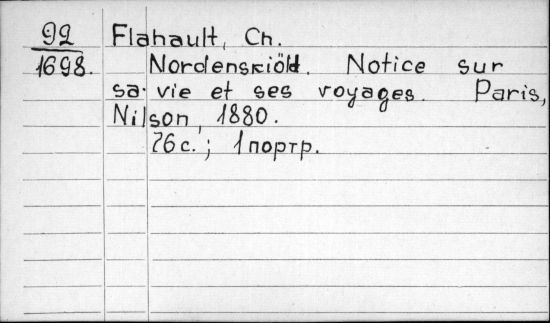 92 Flahault, Ch.
1698. Nordenskiöld. Notice sur
sa vie et ses voyages. Paris,
Nilson, 1880.
76 с.; 1 портр.